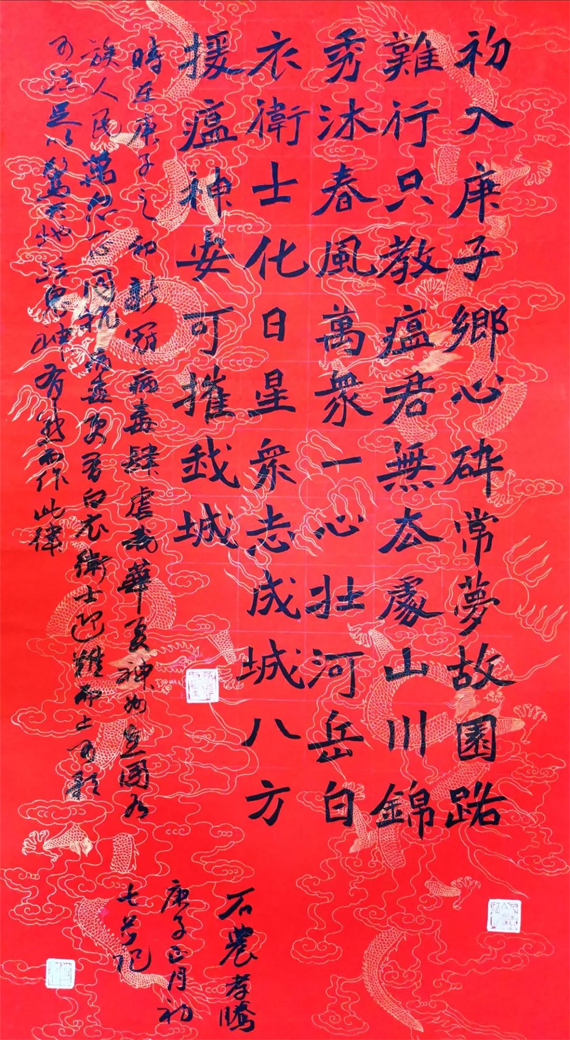 初入庚子鄉心碎常夢故園路
難行只教瘟君無去處山川錦
秀沐春風萬衆一心壯河岳白
衣衛士化日星衆志成城八方
援瘟神安可摧我城
時在庚子之初新冠病毒肆虐我華夏神州全国各
族人民萬众一心同抗病毒更有白衣衛士迎難而上可歌
可泣足以驚天地泣鬼神有感而作此律
石農孝騰
庚子正月初
七